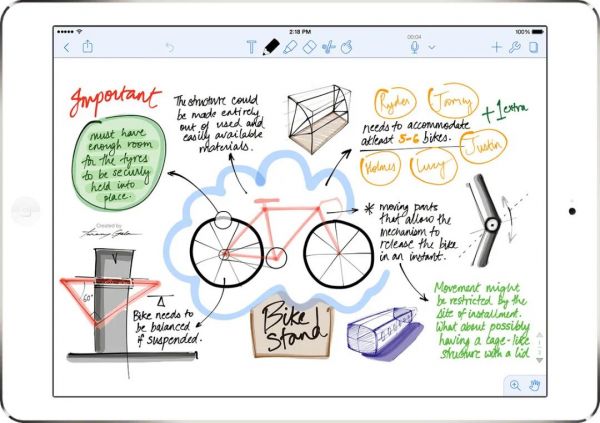 2:18 PM
100%
T
00:04
Important
must have
enough room
for the tyres
to be securly
held into
place.
The structure could
be made entirely
out of used and
easily available
materials.
Ryder
Tommy
+1 extra
needs to accommodate
atleast 5-6 bikes.
Holmes
Lucy
Justin
* moving parts
that allow the
mechanism to
release the bike
in an instant.
Created by
60°
Bike needs to
be balanced
if suspended.
Bike
Stand
Movement might
be restricted by the
site of installment.
What about possibly
having a cage-like
structure with a lid